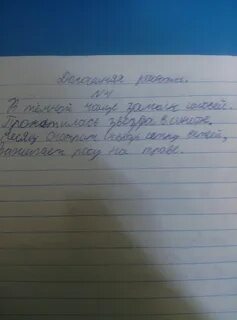 Домашняя работа.
№1
В тёмной чаще замолк соловей,
Прокатилась звезда в синеве,
Месяц смотрит сквозь сетку ветвей,
Зажигает росу на траве.